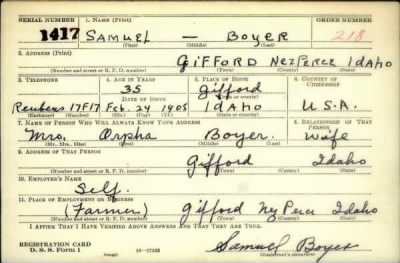 SERIAL NUMBER 1. NAME (Print) ORDER NUMBER
1417 SAMUEL — BOYER 218
(First) (Middle) (Last)
2. ADDRESS (Print)
GIFFORD NEZPERCE IDAHO
(Number and street or R. F. D. number) (Town) (County) (State)
3. TELEPHONE 4. AGE IN YEARS 5. PLACE OF BIRTH 6. COUNTRY OF CITIZENSHIP
35 Gifford
DATE OF BIRTH (Town or county)
Reubens 17F17 Feb. 24 1905 IDAHO U.S.A.
(Exchange) (Number) (Mo.) (Day) (Yr.) (State or country)
7. NAME OF PERSON WHO WILL ALWAYS KNOW YOUR ADDRESS 8. RELATIONSHIP OF THAT PERSON
Mrs. Orpha Boyer. Wife
(Mr., Mrs., Miss) (First) (Middle) (Last)
9. ADDRESS OF THAT PERSON
Gifford Idaho
(Number and street or R. F. D. number) (Town) (County) (State)
10. EMPLOYER'S NAME
Self.
11. PLACE OF EMPLOYMENT OR BUSINESS
(Farmer) Gifford Idaho
(Number and street or R. F. D. number) (Town) (County) (State)
I AFFIRM THAT I HAVE VERIFIED ABOVE ANSWERS AND THAT THEY ARE TRUE.
REGISTRATION CARD Samuel Boyer
D. S. S. Form 1 (Registrant's signature)